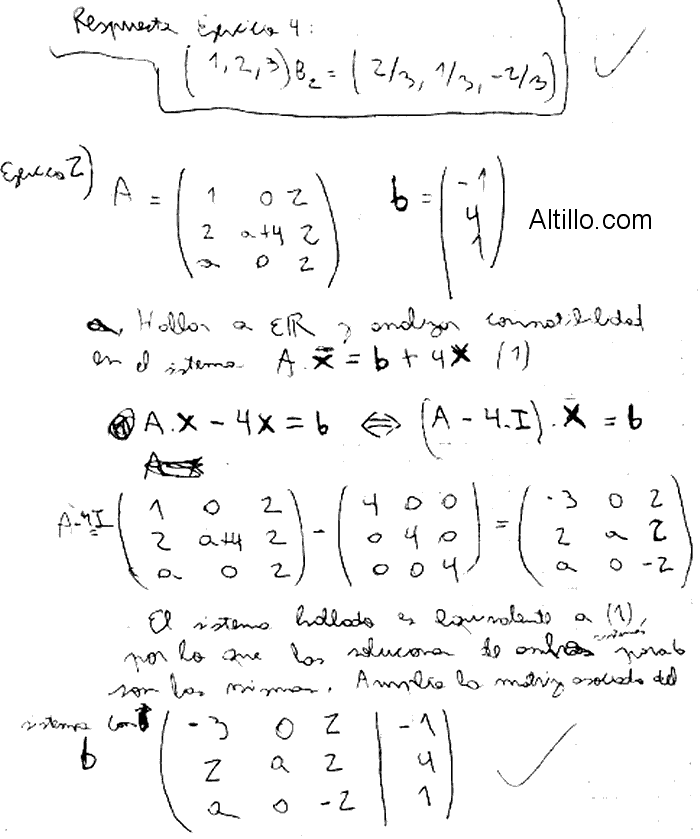 Respuesta Ejercicio 4:
(1, 2, 3)B2 = (2/3, 1/3, -2/3)
Ejercicio 2)
A = ( 1 0 2 b = ( -1
2 a+4 2 4
a 0 2 ) 1 )
Altillo.com
a. Hallar a ∈ ℝ y analizar compatibilidad
en el sistema A.x̄ = b + 4x (1)
A.x - 4x = b ⇔ (A - 4.I).x = b
A-4I ( 1 0 2 - ( 4 0 0 = ( -3 0 2
2 a+4 2 0 4 0 2 a 2
a 0 2 ) 0 0 4 ) a 0 -2 )
El sistema hallado es equivalente a (1),
por lo que las soluciones de ambos sistemas
son las mismas. Amplío la matriz asociada del
sistema con
b ( -3 0 2 | -1
2 a 2 | 4
a 0 -2 | 1 )